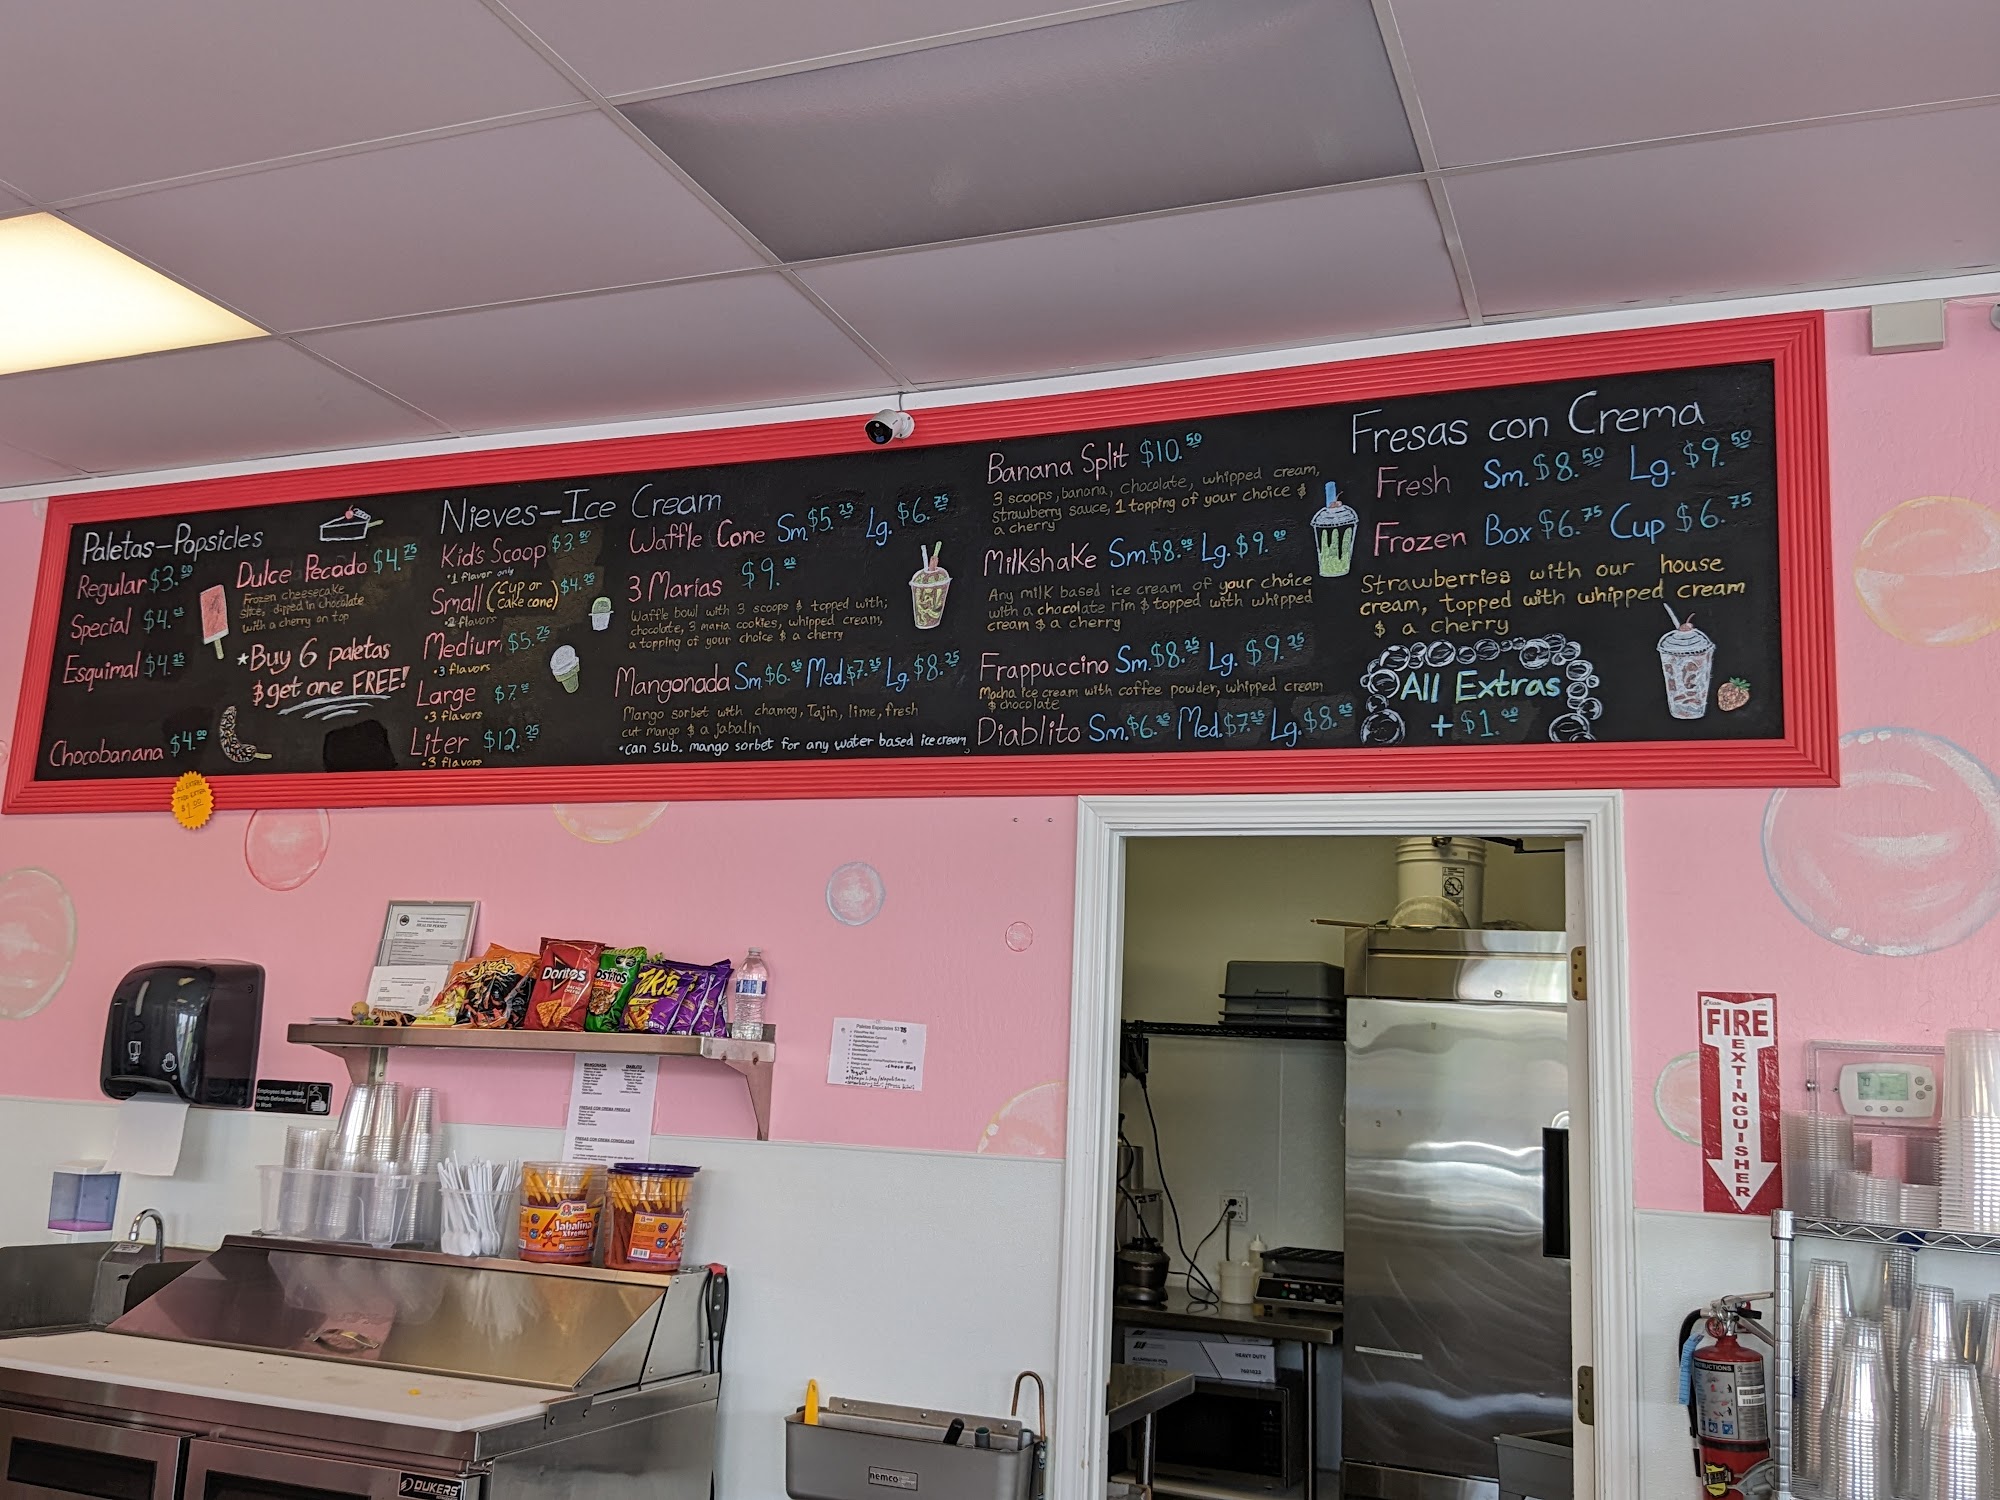 Paletas-Popsicles
Regular $3.00
Special $4.
Esquimal $4.25
Chocobanana $4.00
Dulce Pecado $4.75
Frozen cheesecake
slice, dipped in chocolate
with a cherry on top
*Buy 6 paletas
& get one FREE!
Nieves-Ice Cream
Kid's Scoop $3.50
•1 flavor only
Small (cup or cake cone) $4.75
•2 flavors
Medium $5.75
•3 flavors
Large $7.00
•3 flavors
Liter $12.25
•3 flavors
Waffle Cone Sm. $5.25 Lg. $6.75
3 Marias $9.00
Waffle bowl with 3 scoops & topped with;
chocolate, 3 maria cookies, whipped cream,
a topping of your choice & a cherry
Mangonada Sm. $6.25 Med. $7.25 Lg. $8.25
Mango sorbet with chamoy, Tajin, lime, fresh
cut mango & a jabalin
•can sub. mango sorbet for any water based ice cream
Banana Split $10.50
3 scoops, banana, chocolate, whipped cream,
strawberry sauce, 1 topping of your choice &
a cherry
Milkshake Sm. $8.00 Lg. $9.00
Any milk based ice cream of your choice
with a chocolate rim & topped with whipped
cream & a cherry
Frappuccino Sm. $8.25 Lg. $9.25
Mocha ice cream with coffee powder, whipped cream
& chocolate
Diablito Sm. $6.25 Med. $7.25 Lg. $8.25
Fresas con Crema
Fresh Sm. $8.50 Lg. $9.50
Frozen Box $6.75 Cup $6.75
Strawberries with our house
cream, topped with whipped cream
& a cherry
All Extras
+ $1.00
HEALTH PERMIT
Cheetos
Doritos
Takis
MANGONADA DIABLITO
FRESAS CON CREMA FRESCAS
FRESAS CON CREMA CONGELADAS
Paletas Especiales $3.75
Employees Must Wash
Hands Before Returning
to Work
Jabalina
Xtreme
DUKERS
nemco
HEAVY DUTY
FIRE
EXTINGUISHER
INSTRUCTIONS